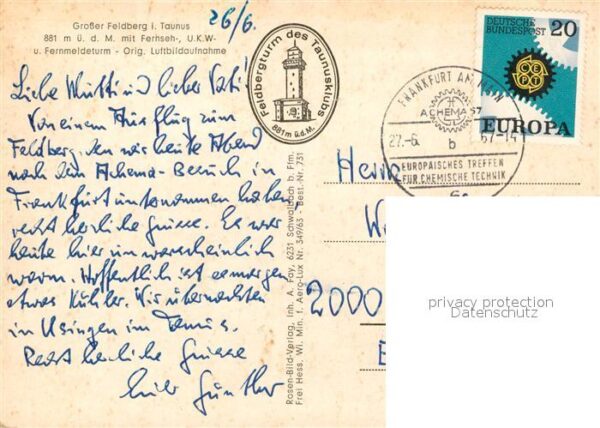 Großer Feldberg i. Taunus
881 m ü. d. M. mit Fernseh-, U.K.W-
u. Fernmeldeturm - Orig. Luftbildaufnahme
26/6
Liebe Mutti und lieber Vati!
Von einem Ausflug zum
Feldberg, den wir heute Abend
nach dem Achema-Besuch in
Frankfurt unternommen haben
recht herzliche Grüsse. Es war
heute hier unwarscheinlich
warm. Hoffentlich ist es morgen
etwas kühler. Wir übernachten
in Usingen im Taunus.
Recht herzliche Grüsse
Günther
Feldbergturm des Taunusklubs
881m ü.d.M.
Rosen-Bild-Verlag, Inh. A. Fay, 6231 Schwalbach b. Ffm.
Frei Hess. Wi. Min. f. Aero-Lux Nr. 349/63 - Best.-Nr. 731
DEUTSCHE
BUNDESPOST
20
CEPT
EUROPA
FRANKFURT AM MAIN
ACHEMA 67
27.-6. 67-14
b
EUROPÄISCHES TREFFEN
FÜR CHEMISCHE TECHNIK
Herrn
2000
privacy protection
Datenschutz